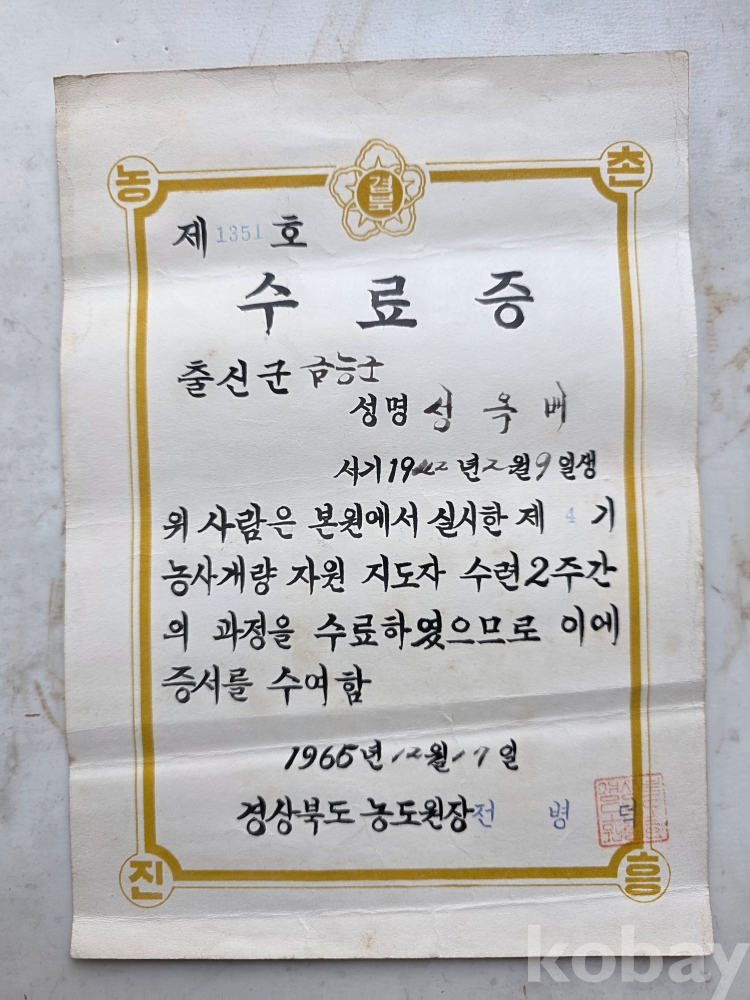 농 촌
경북
제 1351 호
수 료 증
출신군 금능군
성명 성 옥 배
서기 1942년 2월 9일생
위 사람은 본원에서 실시한 제 4 기
농사개량 자원 지도자 수련 2주간
의 과정을 수료하였으므로 이에
증서를 수여함
1965년 12월 17일
경상북도 농도원장 전 병 덕
진 흥
kobay